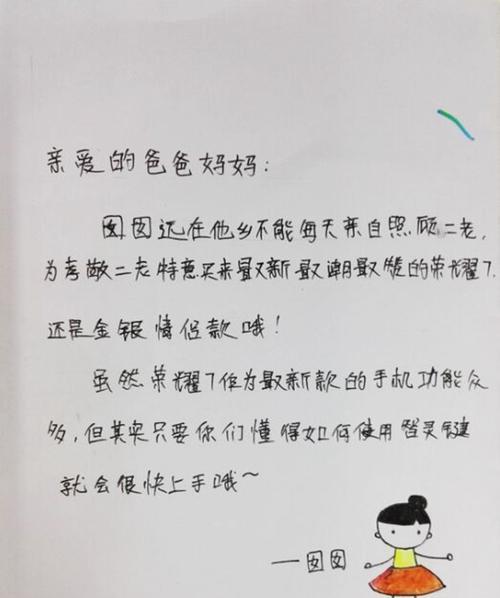 亲爱的爸爸妈妈：
囡囡远在他乡不能每天亲自照顾二老，
为孝敬二老特意买来最新最潮最炫的荣耀7，
还是金银情侣款哦！
虽然荣耀7作为最新款的手机功能众
多，但其实只要你们懂得如何使用智灵键
就会很快上手哦～
——囡囡